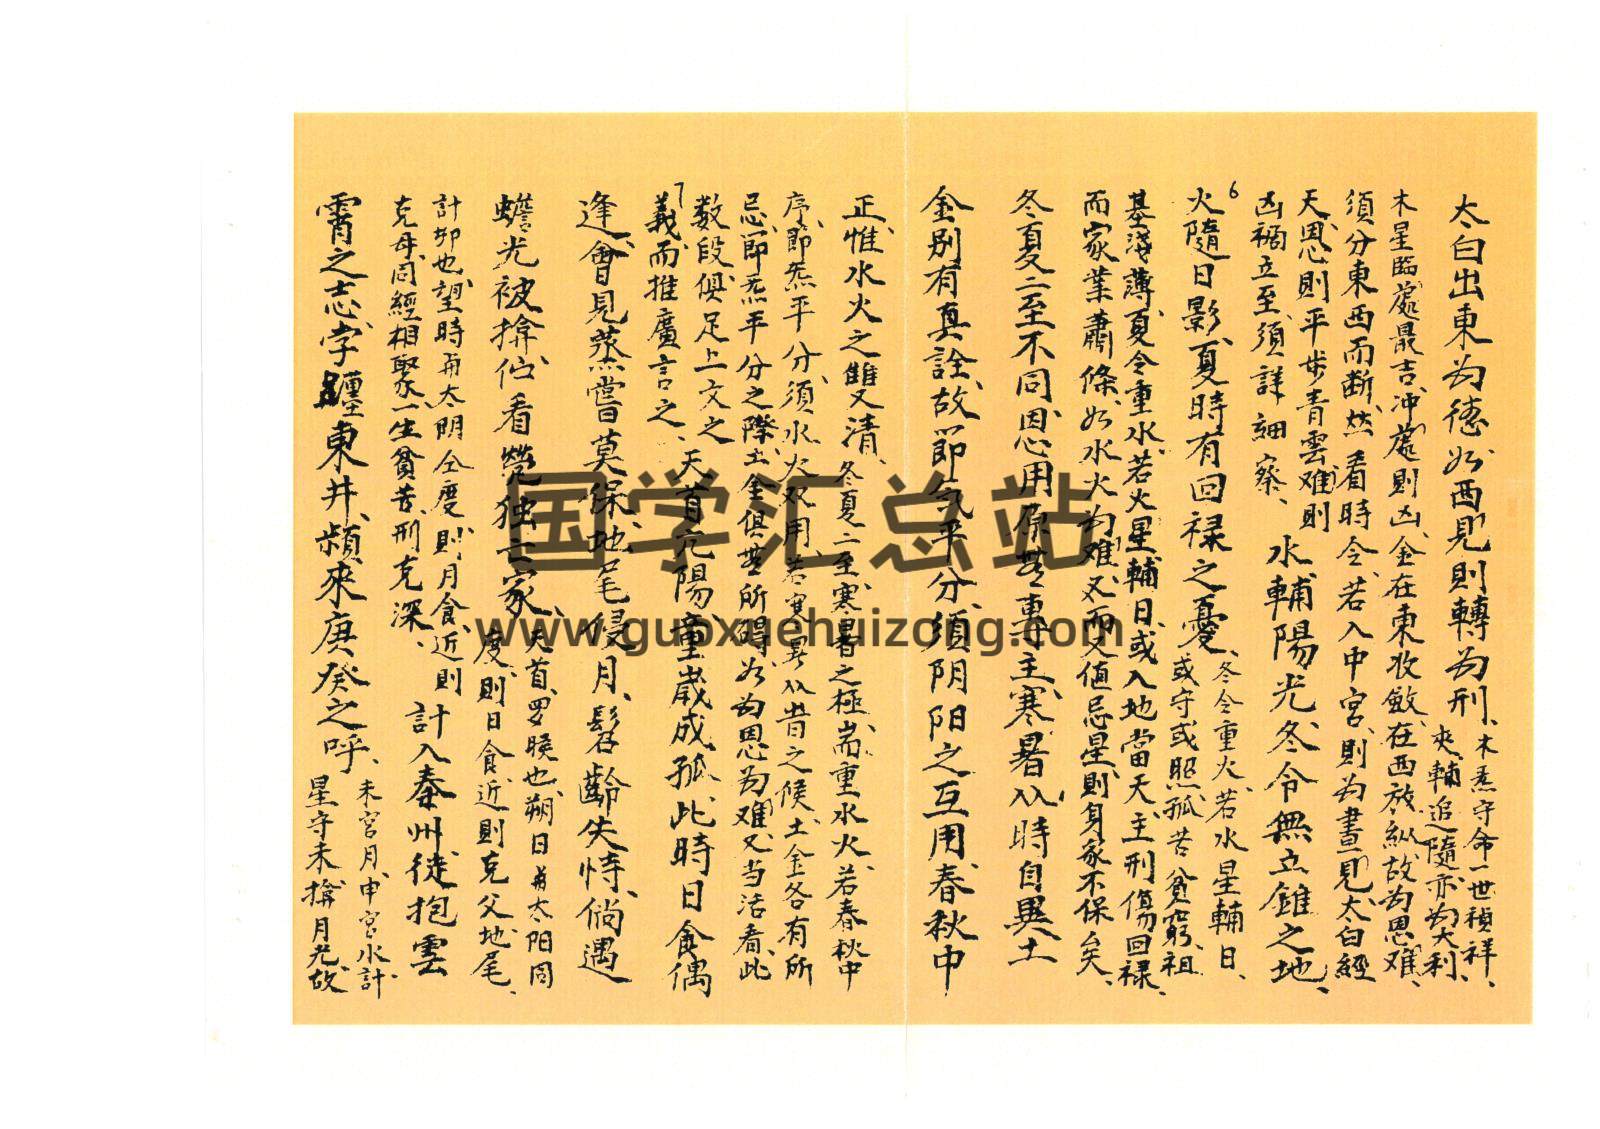 太白出東為德如西見則轉為刑、木炁守命一世禎祥、
夾輔追隨亦為大利、
木星臨處最吉冲處則凶、金在東收斂、在西放縱故為恩难、
須分東西而断、然看時令、若入中宮、則為晝見太白經
天、恩則平步青雲难則
凶禍立至須詳細察、
水輔陽光冬令無立錐之地、
6
火隨日影、夏時有回祿之憂、
冬令重火、若水星輔日、
或守或照孤苦貧窮、祖
基淺薄、夏令重水、若火星輔日、或入地當天、主刑傷回祿、
而家業蕭條、如水火為难、又而又值忌星、則身家不保矣、
冬夏二至不同、恩用原無專主、寒暑以時自異、土
金别有真詮、故節氣平分、須阴阳之互用、春秋中
正、惟水火之雙清、
冬夏二至、寒暑之極、耑重水火、若春秋中
序、節炁平分、須水火双用、寒暑以昔之候、土金各有所
忌、節炁平分之際、土金俱無所碍、如為恩為难、又当活看、此
数段俱足上文之
義、而推廣言之、
7
天首亢陽、童歲成孤、此時日食偶
逢、會見蒸嘗莫保、地尾侵月、髫齡失恃、倘遇
蟾光被揜、佇看煢独之家、
天首、罗睺也、朔日與太阳同
度、則日食、近則克父、地尾、
計卯也、望時與太阴仝度、則月食、近則
克母、同經相聚、一生貧苦、刑克深、
計入秦州、徒抱雲
霄之志、孛纏東井、頻來庚癸之呼、
未宮月、申宮水、計
星守未、揜月光、故
国学汇总站
www.guoxuehuizong.com